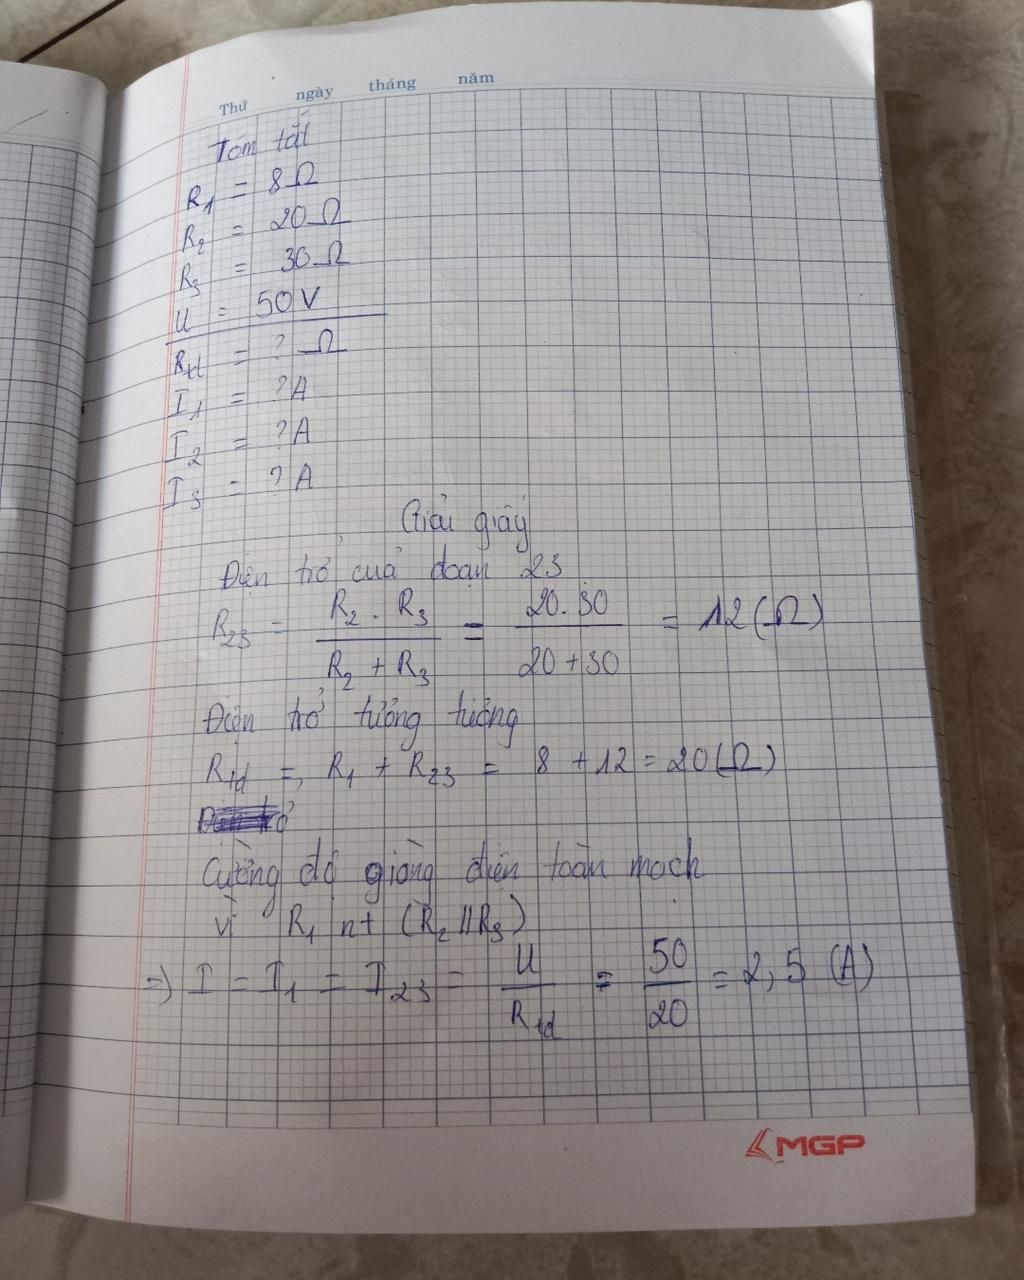 Thứ ngày tháng năm
Tóm tắt
R1 = 8Ω
R2 = 20Ω
R3 = 30Ω
U = 50V
Rtđ = ? Ω
I1 = ?A
I2 = ?A
I3 = ? A
Giải giấy
Điện trở của đoạn 23
R23 = R2 . R3 / R2 + R3 = 20.30 / 20+30 = 12(Ω)
Điện trở tưởng tưởng
Rtd = R1 + R23 = 8 + 12 = 20(Ω)
Cường độ giòng điện toàn mach
Vì R1 nt (R2 // R3)
=> I = I1 = I23 = U / Rtd = 50 / 20 = 2,5 (A)
MGP